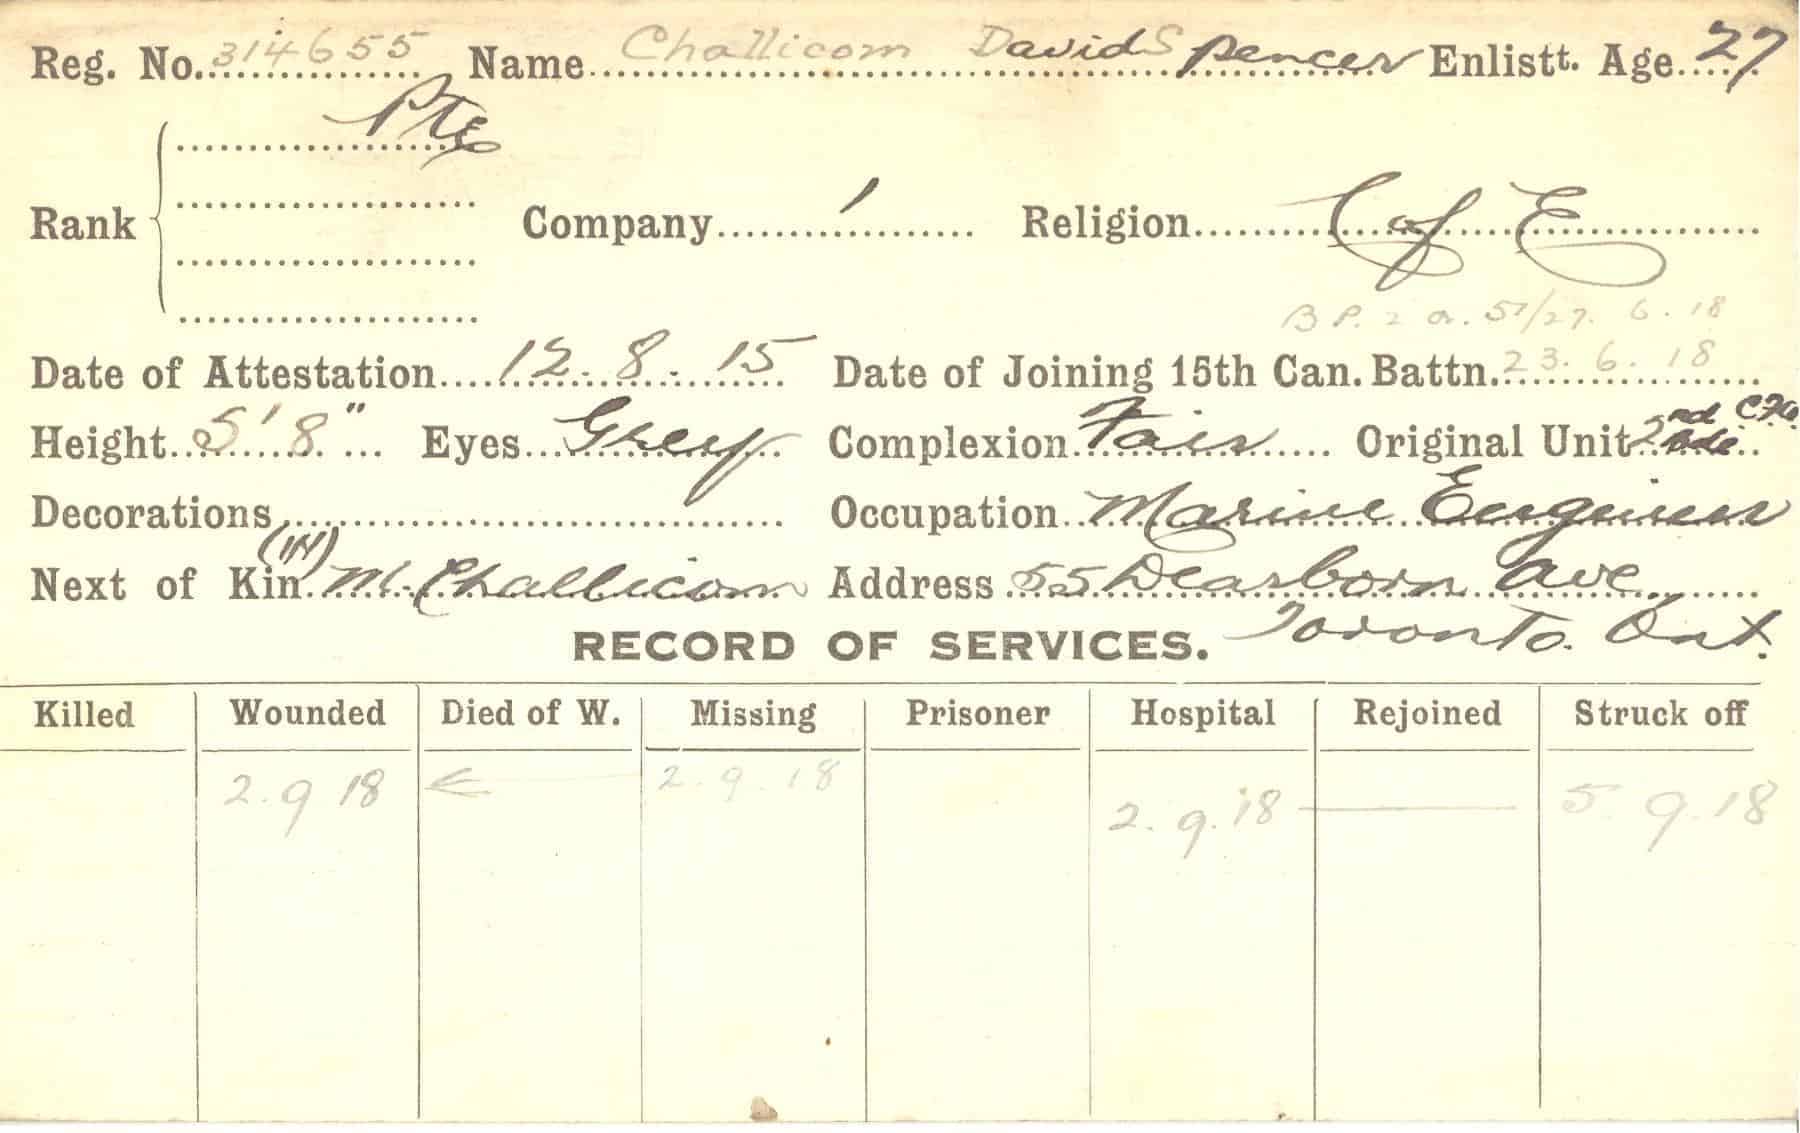 Reg. No. 314655 Name Challicom David Spencer Enlistt. Age 27
Pte
Rank Company 1 Religion C of E
B P. 2 O. 57/27. 6. 18
Date of Attestation 12. 8. 15 Date of Joining 15th Can. Battn. 23. 6. 18
Height 5' 8" Eyes Grey Complexion Fair Original Unit 2nd
Decorations Occupation Marine Engineer
Next of Kin M. Challicom Address 55 Dearborn Ave
RECORD OF SERVICES. Toronto. Ont.
Killed Wounded Died of W. Missing Prisoner Hospital Rejoined Struck off
2. 9 18 ← 2. 9. 18 2. 9. 18 — 5. 9. 18